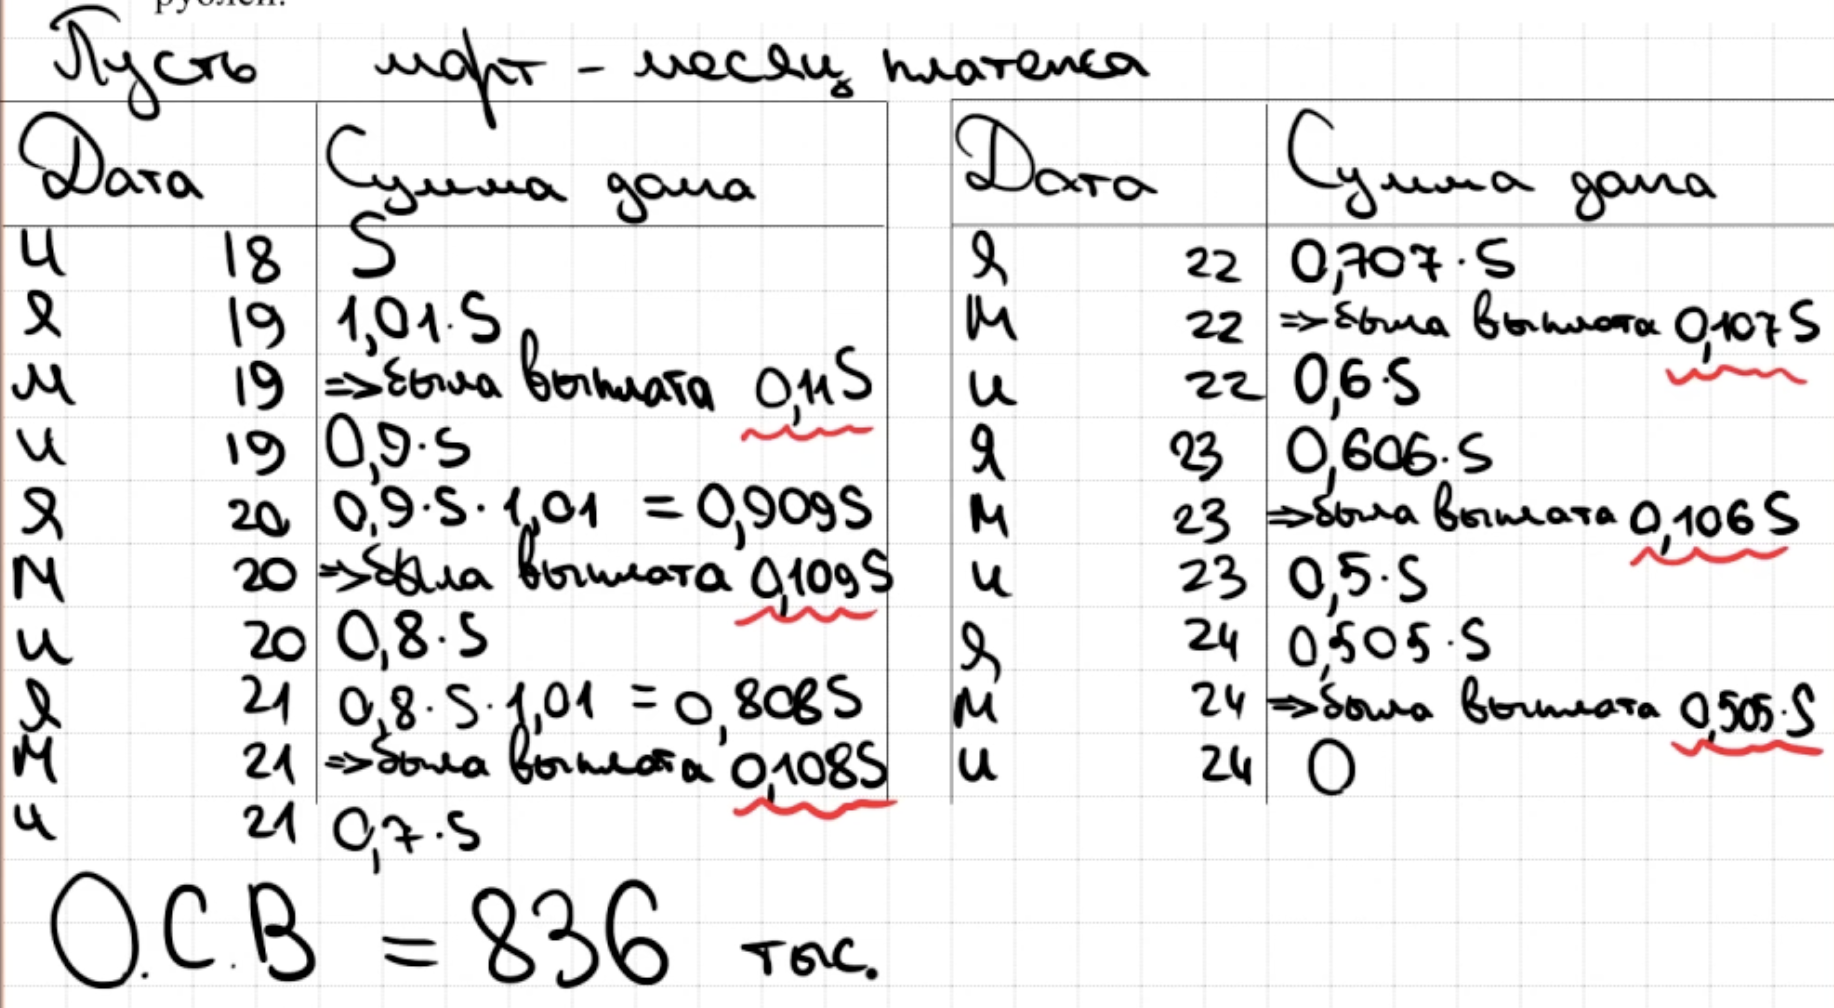 рублей.
Пусть март - месяц платежа
Дата Сумма долга
И 18 S
Я 19 1,01·S
М 19 =>была выплата 0,11S
И 19 0,9·S
Я 20 0,9·S·1,01 = 0,909S
М 20 =>была выплата 0,109S
И 20 0,8·S
Я 21 0,8·S·1,01 = 0,808S
М 21 =>была выплата 0,108S
И 21 0,7·S
Дата Сумма долга
Я 22 0,707·S
М 22 =>была выплата 0,107S
И 22 0,6·S
Я 23 0,606·S
М 23 =>была выплата 0,106S
И 23 0,5·S
Я 24 0,505·S
М 24 =>была выплата 0,505·S
И 24 0
О.С.В = 836 тыс.